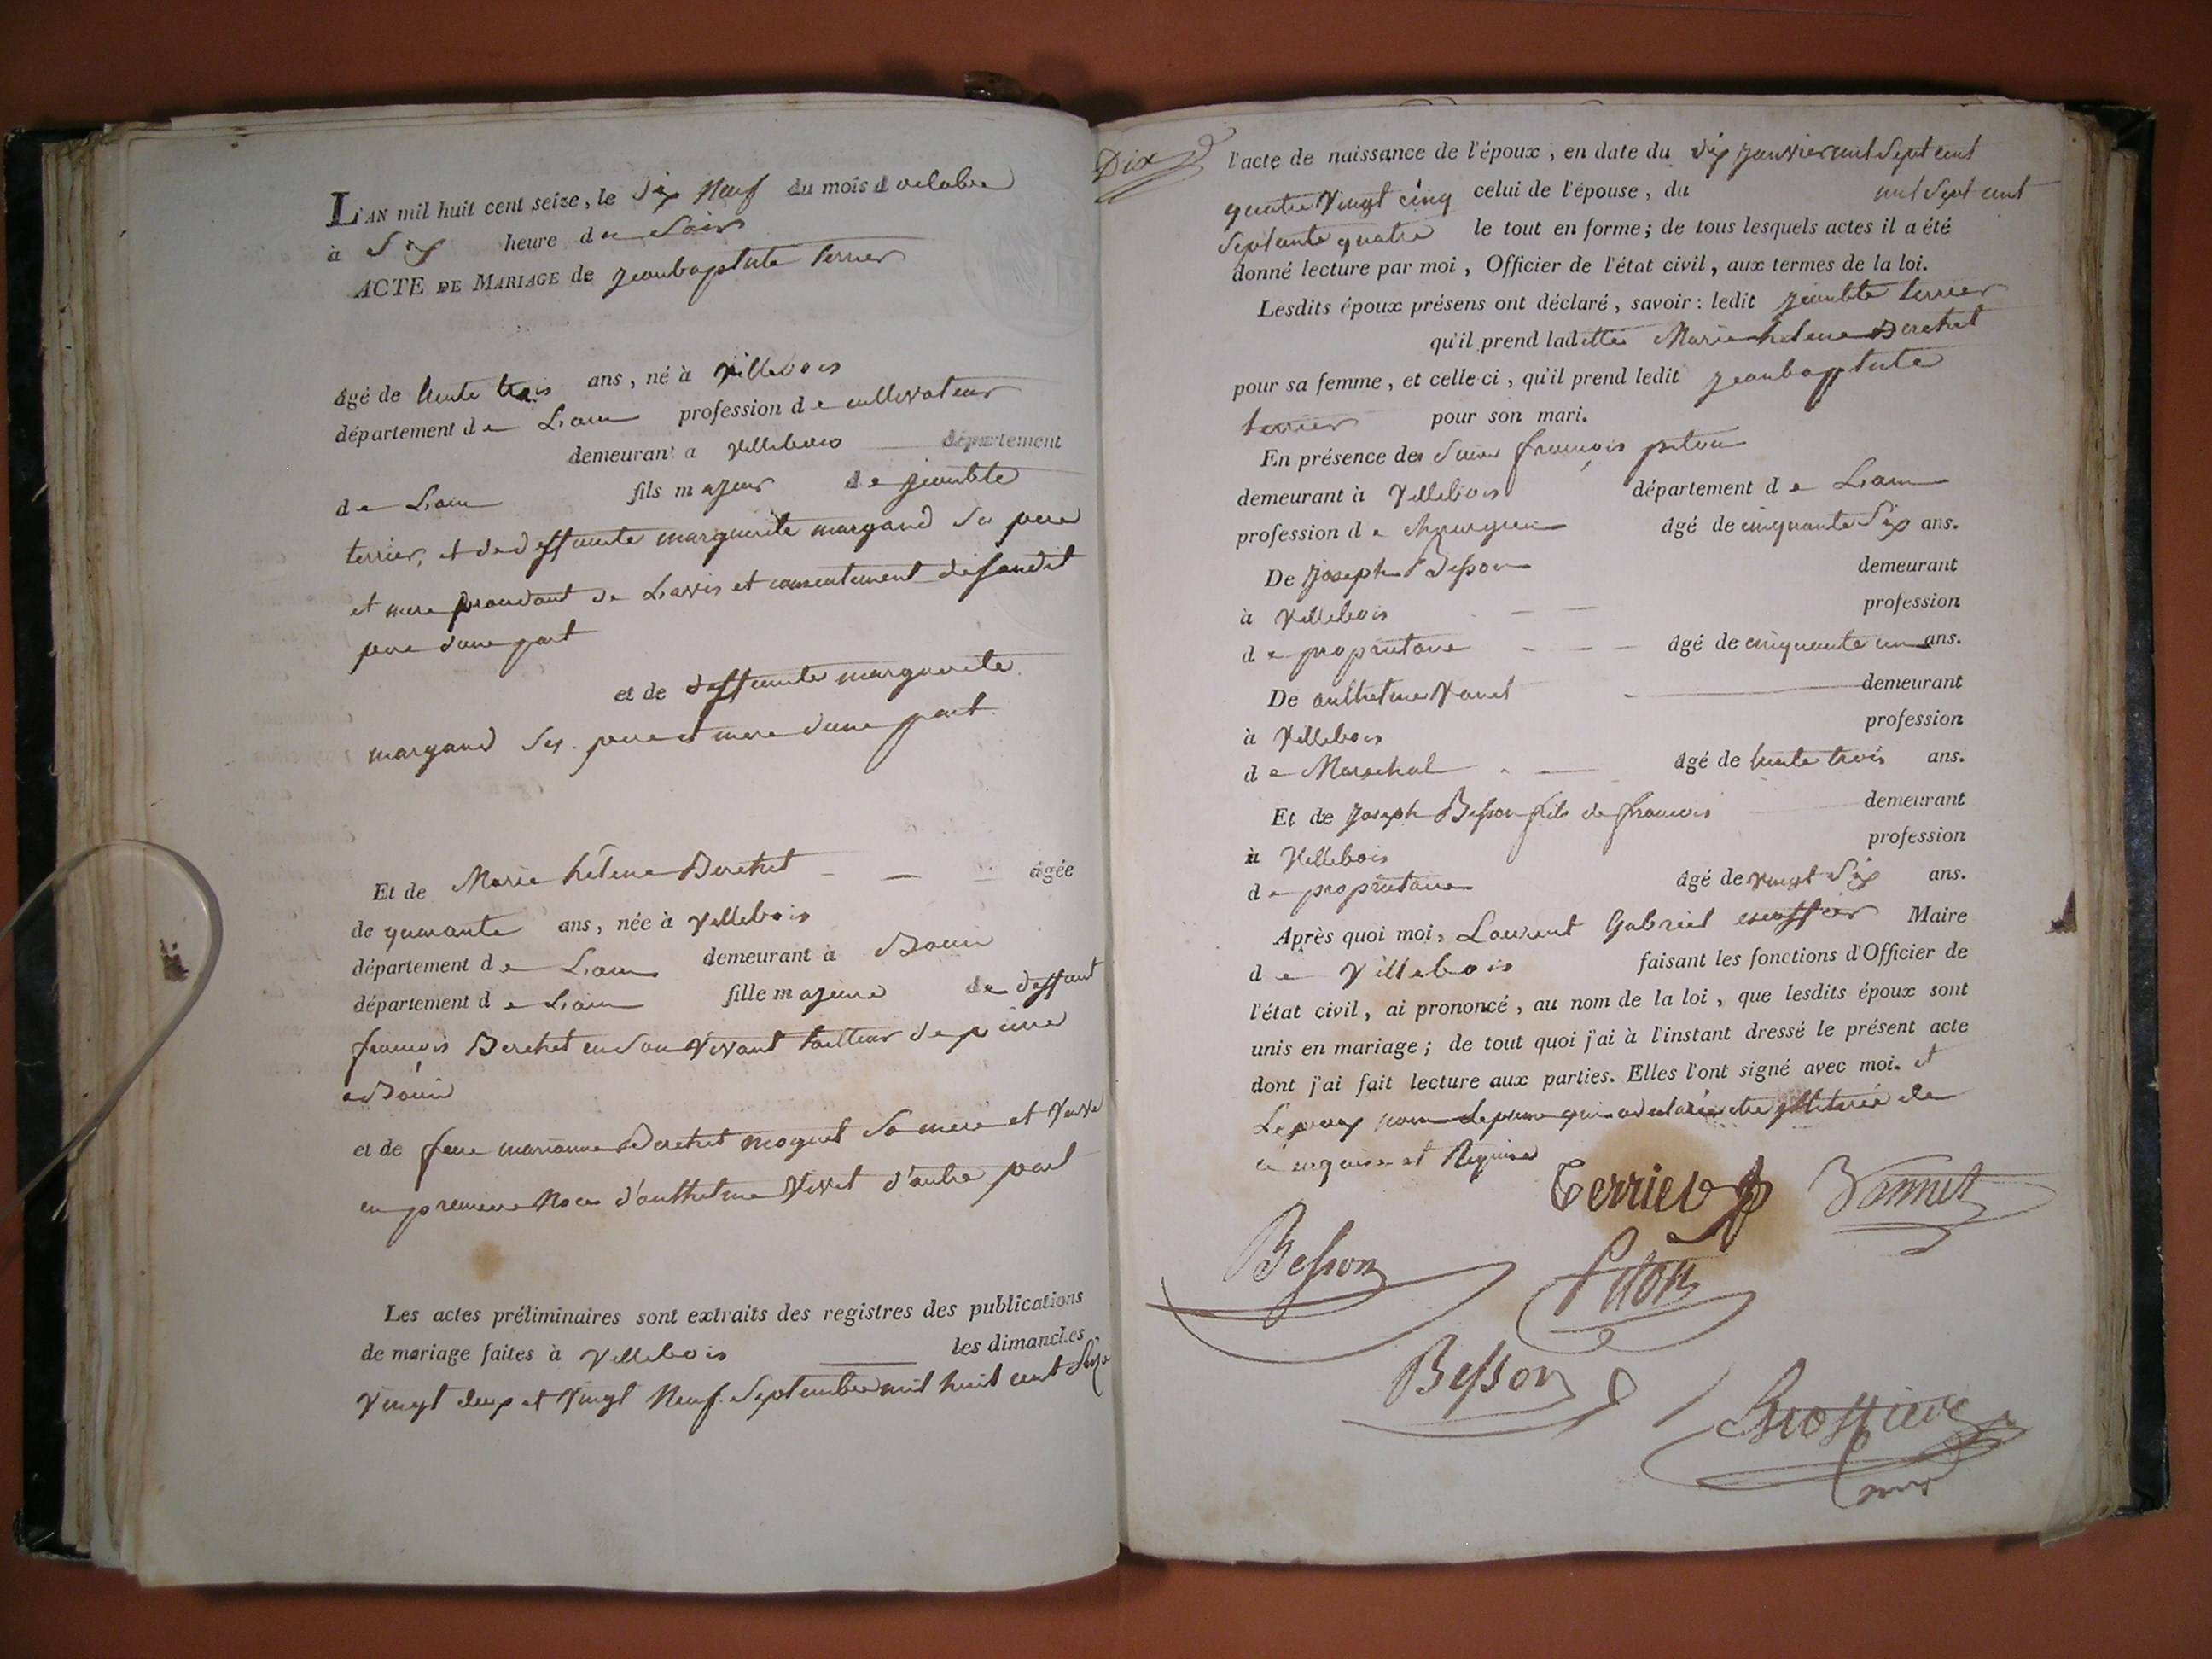 L'AN mil huit cent seize, le dix Neuf du mois d octobre
à Six heure du Soir
ACTE DE MARIAGE de jeanbaptiste terrier
âgé de trente trois ans, né à Villebois
département de Lain profession de cultivateur
demeurant a Villebois département
de Lain fils majeur de jeanbte
terrier, et de deffunte marguerite margand Ses pere
et mere procedant de Lavis et consentement desondit
pere dune part
et de deffunte marguerite
margand Ses pere et mere dune part
Et de Marie hélène Berchet âgée
de quarante ans, née à Villebois
département de Lain demeurant à Bouis
département de Lain fille majeure de deffunt
françois Berchet en Son Vivant tailleur de pierre
a Bouis
et de feue marianne Berchet moguet Sa mere et Veuve
en premiere Noces d'anthelme Vivet d'autre part
Les actes préliminaires sont extraits des registres des publications
de mariage faites à Villebois les dimanches
Vingt deux et Vingt Neuf Septembre mil huit cent Seize
Dix
l'acte de naissance de l'époux, en date du dix janvier mil Sept cent
quatre Vingt cinq celui de l'épouse, du mil Sept cent
Septante quatre le tout en forme; de tous lesquels actes il a été
donné lecture par moi, Officier de l'état civil, aux termes de la loi.
Lesdits époux présens ont déclaré, savoir: ledit jeanbte terrier
qu'il prend laditte Marie helene Berchet
pour sa femme, et celle ci, qu'il prend ledit jeanbaptiste
terrier pour son mari.
En présence des Sieurs françois piton
demeurant à Villebois département de Lain
profession de chirurgien âgé de cinquante Six ans.
De Joseph Besson demeurant
à Villebois profession
de propriétaire âgé de cinquante un ans.
De anthelme Vanet demeurant
à Villebois profession
de Marechal âgé de trente trois ans.
Et de Joseph Besson fils de francois demeurant
à Villebois profession
de propriétaire âgé de vingt Six ans.
Après quoi moi, Laurent Gabriel escoffier Maire
de Villebois faisant les fonctions d'Officier de
l'état civil, ai prononcé, au nom de la loi, que lesdits époux sont
unis en mariage; de tout quoi j'ai à l'instant dressé le présent acte
dont j'ai fait lecture aux parties. Elles l'ont signé avec moi. et
Lepoux non lepouse qui a declaré etre illiterée de
ce enquise et Requise
Terrier Vannet
Besson Piton
Besson
Escoffier